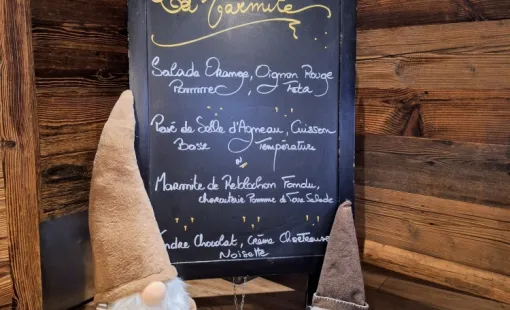 La Marmite
Salade Orange, Oignon Rouge
Pomme, Feta
Pavé de Selle d'Agneau, Cuisson
Basse Température
ou
Marmite de Reblochon Fondu,
charcuterie Pomme de Terre Salade
Tendre Chocolat, crème Chartreuse
Noisette